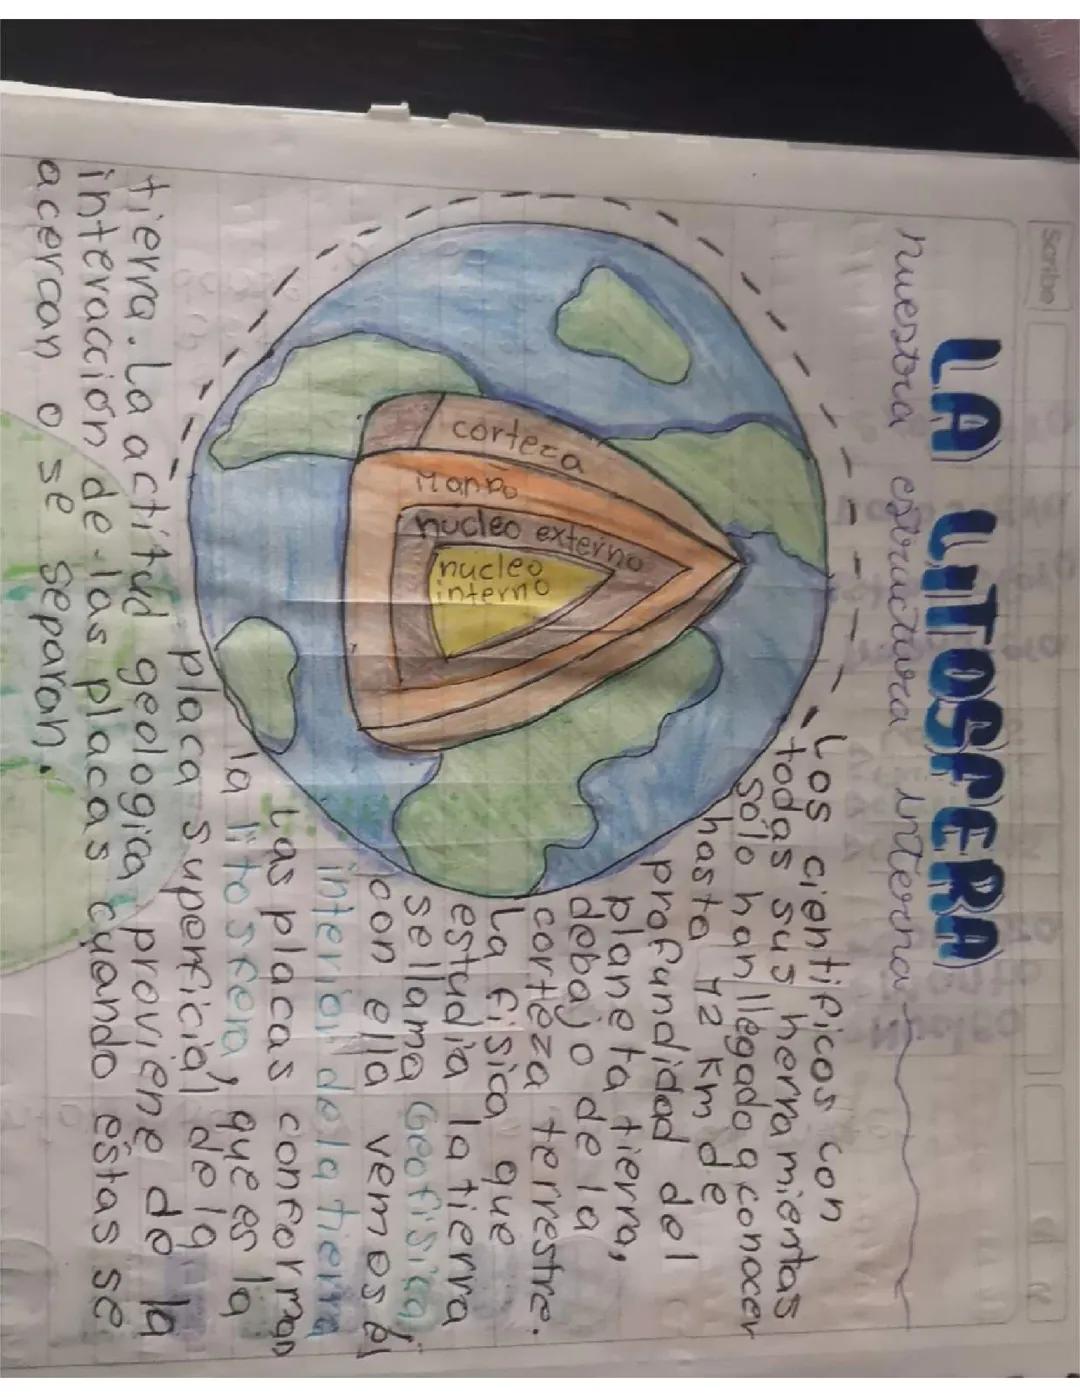 Scribe
LA LITOSFERA
nuestra estructura interna
corteza
Manto
nucleo externo
nucleo
interno
Los cientificos con
todas sus herramientas
sólo han llegado a conocer
hasta 12 km de
profundidad del
planeta tierra,
debajo de la
corteza terrestre.
La fisica que
estudia la tierra
se llama Geofisica,
con ella vemos el
interior de la tierra
Las placas conforman
la litosfera, que es la
placa superficial de la
tierra. La actitud geologica proviene de la
interacción de las placas cuando éstas se
acercan o se separan.